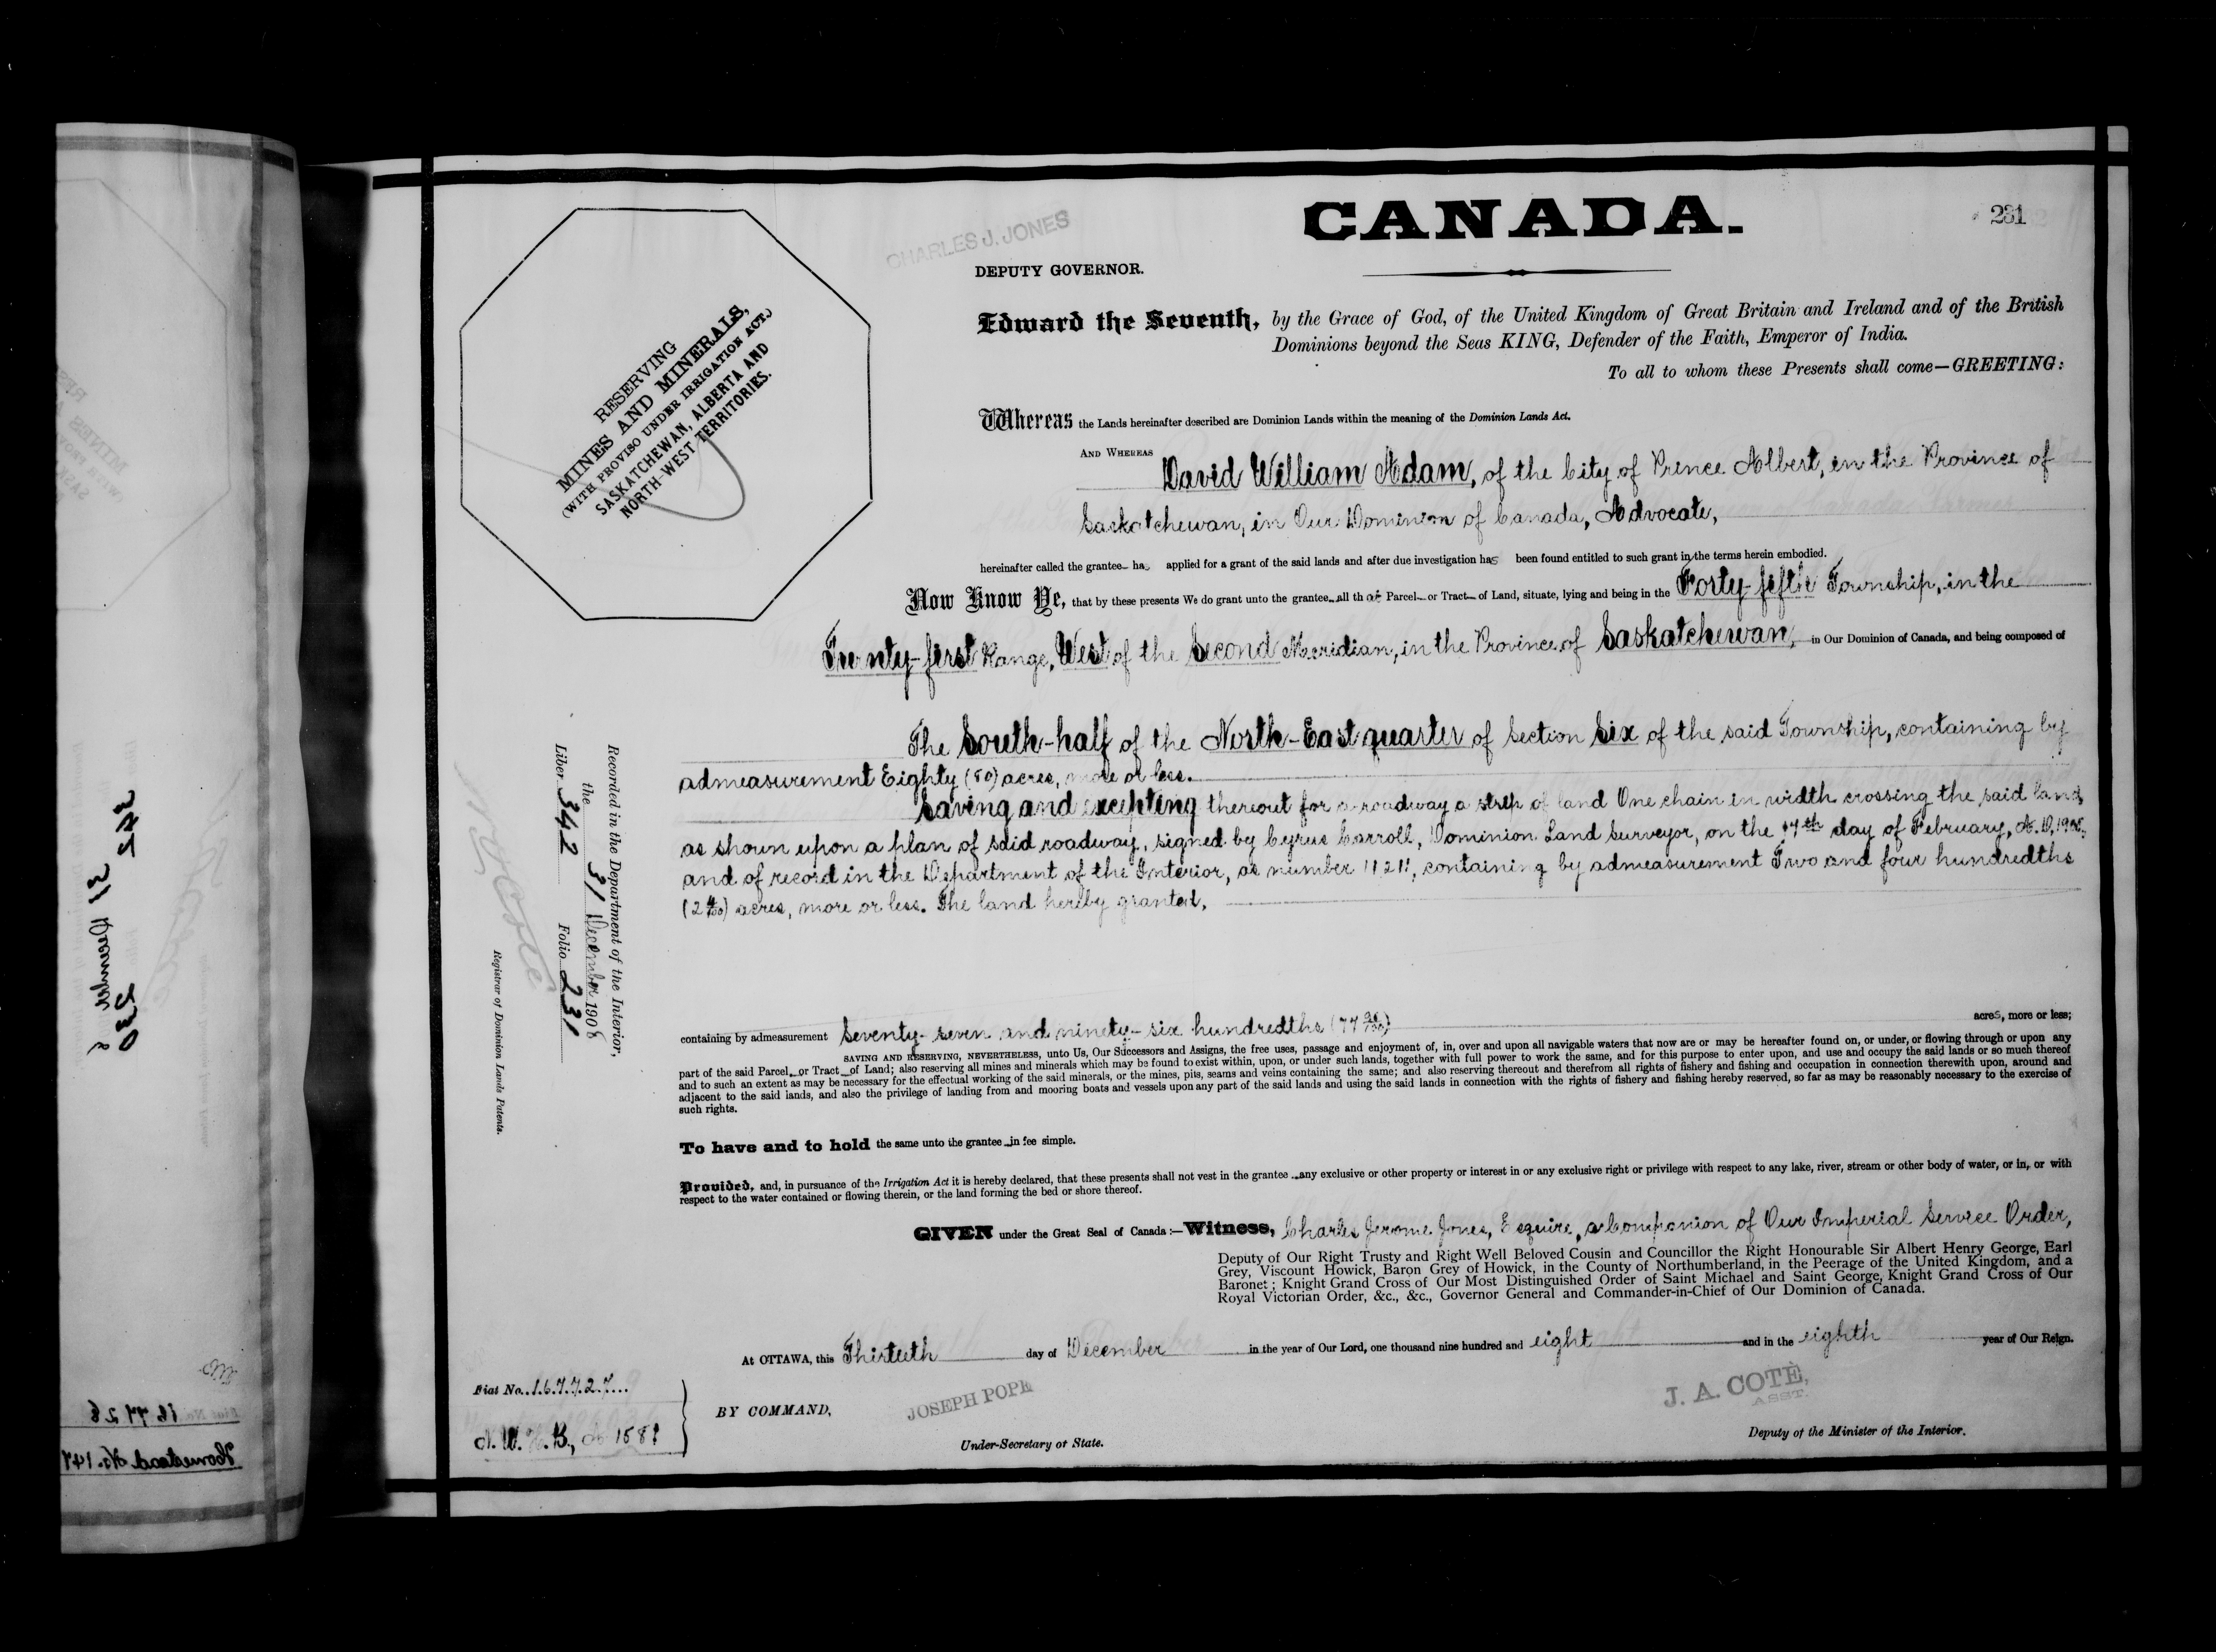 CANADA.
231
CHARLES J. JONES
DEPUTY GOVERNOR.
RESERVING
MINES AND MINERALS,
(WITH PROVISO UNDER IRRIGATION ACT.)
SASKATCHEWAN, ALBERTA AND
NORTH-WEST TERRITORIES.
Edward the Seventh, by the Grace of God, of the United Kingdom of Great Britain and Ireland and of the British
Dominions beyond the Seas KING, Defender of the Faith, Emperor of India.
To all to whom these Presents shall come—GREETING:
Whereas the Lands hereinafter described are Dominion Lands within the meaning of the Dominion Lands Act.
AND WHEREAS David William Adam, of the City of Prince Albert, in the Province of
Saskatchewan, in Our Dominion of Canada, Advocate,
hereinafter called the grantee has applied for a grant of the said lands and after due investigation has been found entitled to such grant in the terms herein embodied.
Now Know Ye, that by these presents We do grant unto the grantee all that Parcel or Tract of Land, situate, lying and being in the Forty-fifth Township, in the
Twenty-first Range, West of the Second Meridian, in the Province of Saskatchewan, in Our Dominion of Canada, and being composed of
The South-half of the North-East quarter of Section Six of the said Township, containing by
admeasurement Eighty (80) acres, more or less.
Saving and excepting thereout for a roadway a strip of land One chain in width crossing the said land,
as shown upon a plan of said roadway, signed by Cyrus Carroll, Dominion Land Surveyor, on the day of February, A.D.
and of record in the Department of the Interior, as number containing by admeasurement Two and four hundredths
(2 4/100) acres, more or less. The land hereby granted,
containing by admeasurement Seventy-seven and ninety-six hundredths (77 96/100) acres, more or less;
SAVING AND RESERVING, NEVERTHELESS, unto Us, Our Successors and Assigns, the free uses, passage and enjoyment of, in, over and upon all navigable waters that now are or may be hereafter found on, or under, or flowing through or upon any
part of the said Parcel or Tract of Land; also reserving all mines and minerals which may be found to exist within, upon, or under such lands, together with full power to work the same, and for this purpose to enter upon, and use and occupy the said lands or so much thereof
and to such an extent as may be necessary for the effectual working of the said minerals, or the mines, pits, seams and veins containing the same; and also reserving thereout and therefrom all rights of fishery and fishing and occupation in connection therewith upon, around and
adjacent to the said lands, and also the privilege of landing from and mooring boats and vessels upon any part of the said lands and using the said lands in connection with the rights of fishery and fishing hereby reserved, so far as may be reasonably necessary to the exercise of
such rights.
To have and to hold the same unto the grantee in fee simple.
Provided, and, in pursuance of the Irrigation Act it is hereby declared, that these presents shall not vest in the grantee any exclusive or other property or interest in or any exclusive right or privilege with respect to any lake, river, stream or other body of water, or in, or with
respect to the water contained or flowing therein, or the land forming the bed or shore thereof.
GIVEN under the Great Seal of Canada:—Witness, Charles Jerome Jones, Esquire, a Companion of Our Imperial Service Order,
Deputy of Our Right Trusty and Right Well Beloved Cousin and Councillor the Right Honourable Sir Albert Henry George, Earl
Grey, Viscount Howick, Baron Grey of Howick, in the County of Northumberland, in the Peerage of the United Kingdom, and a
Baronet; Knight Grand Cross of Our Most Distinguished Order of Saint Michael and Saint George, Knight Grand Cross of Our
Royal Victorian Order, &c., &c., Governor General and Commander-in-Chief of Our Dominion of Canada.
At OTTAWA, this Thirtieth day of December in the year of Our Lord, one thousand nine hundred and eight and in the eighth year of Our Reign.
BY COMMAND,
JOSEPH POPE
Under-Secretary of State.
J. A. COTÉ,
ASST.
Deputy of the Minister of the Interior.
Fiat No. 167727
Recorded in the Department of the Interior,
the 31 December 1908
Liber 342 Folio 231
N. O. Coté
Registrar of Dominion Lands Patents.
342 31 December 8 230
167726
Homestead No. 147